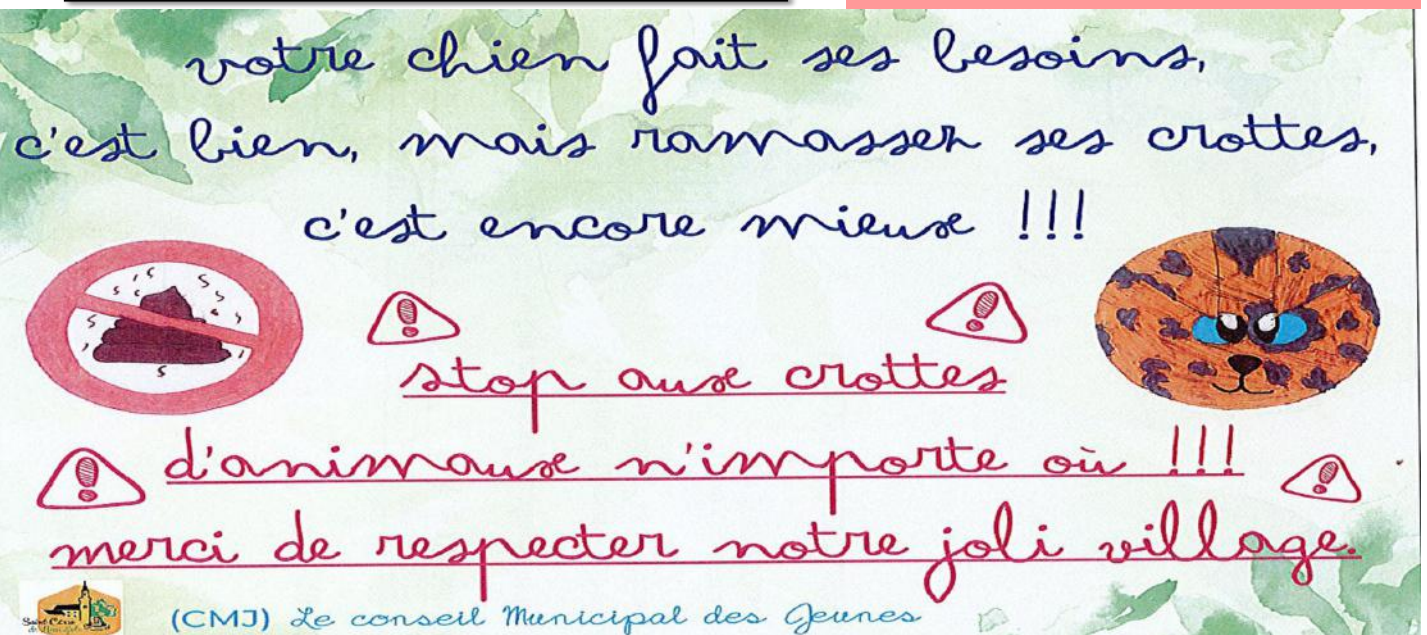 votre chien fait ses besoins,
c'est bien, mais ramasser ses crottes,
c'est encore mieux !!!
stop aux crottes
d'animaux n'importe où !!!
merci de respecter notre joli village.
(CMJ) Le conseil Municipal des Jeunes